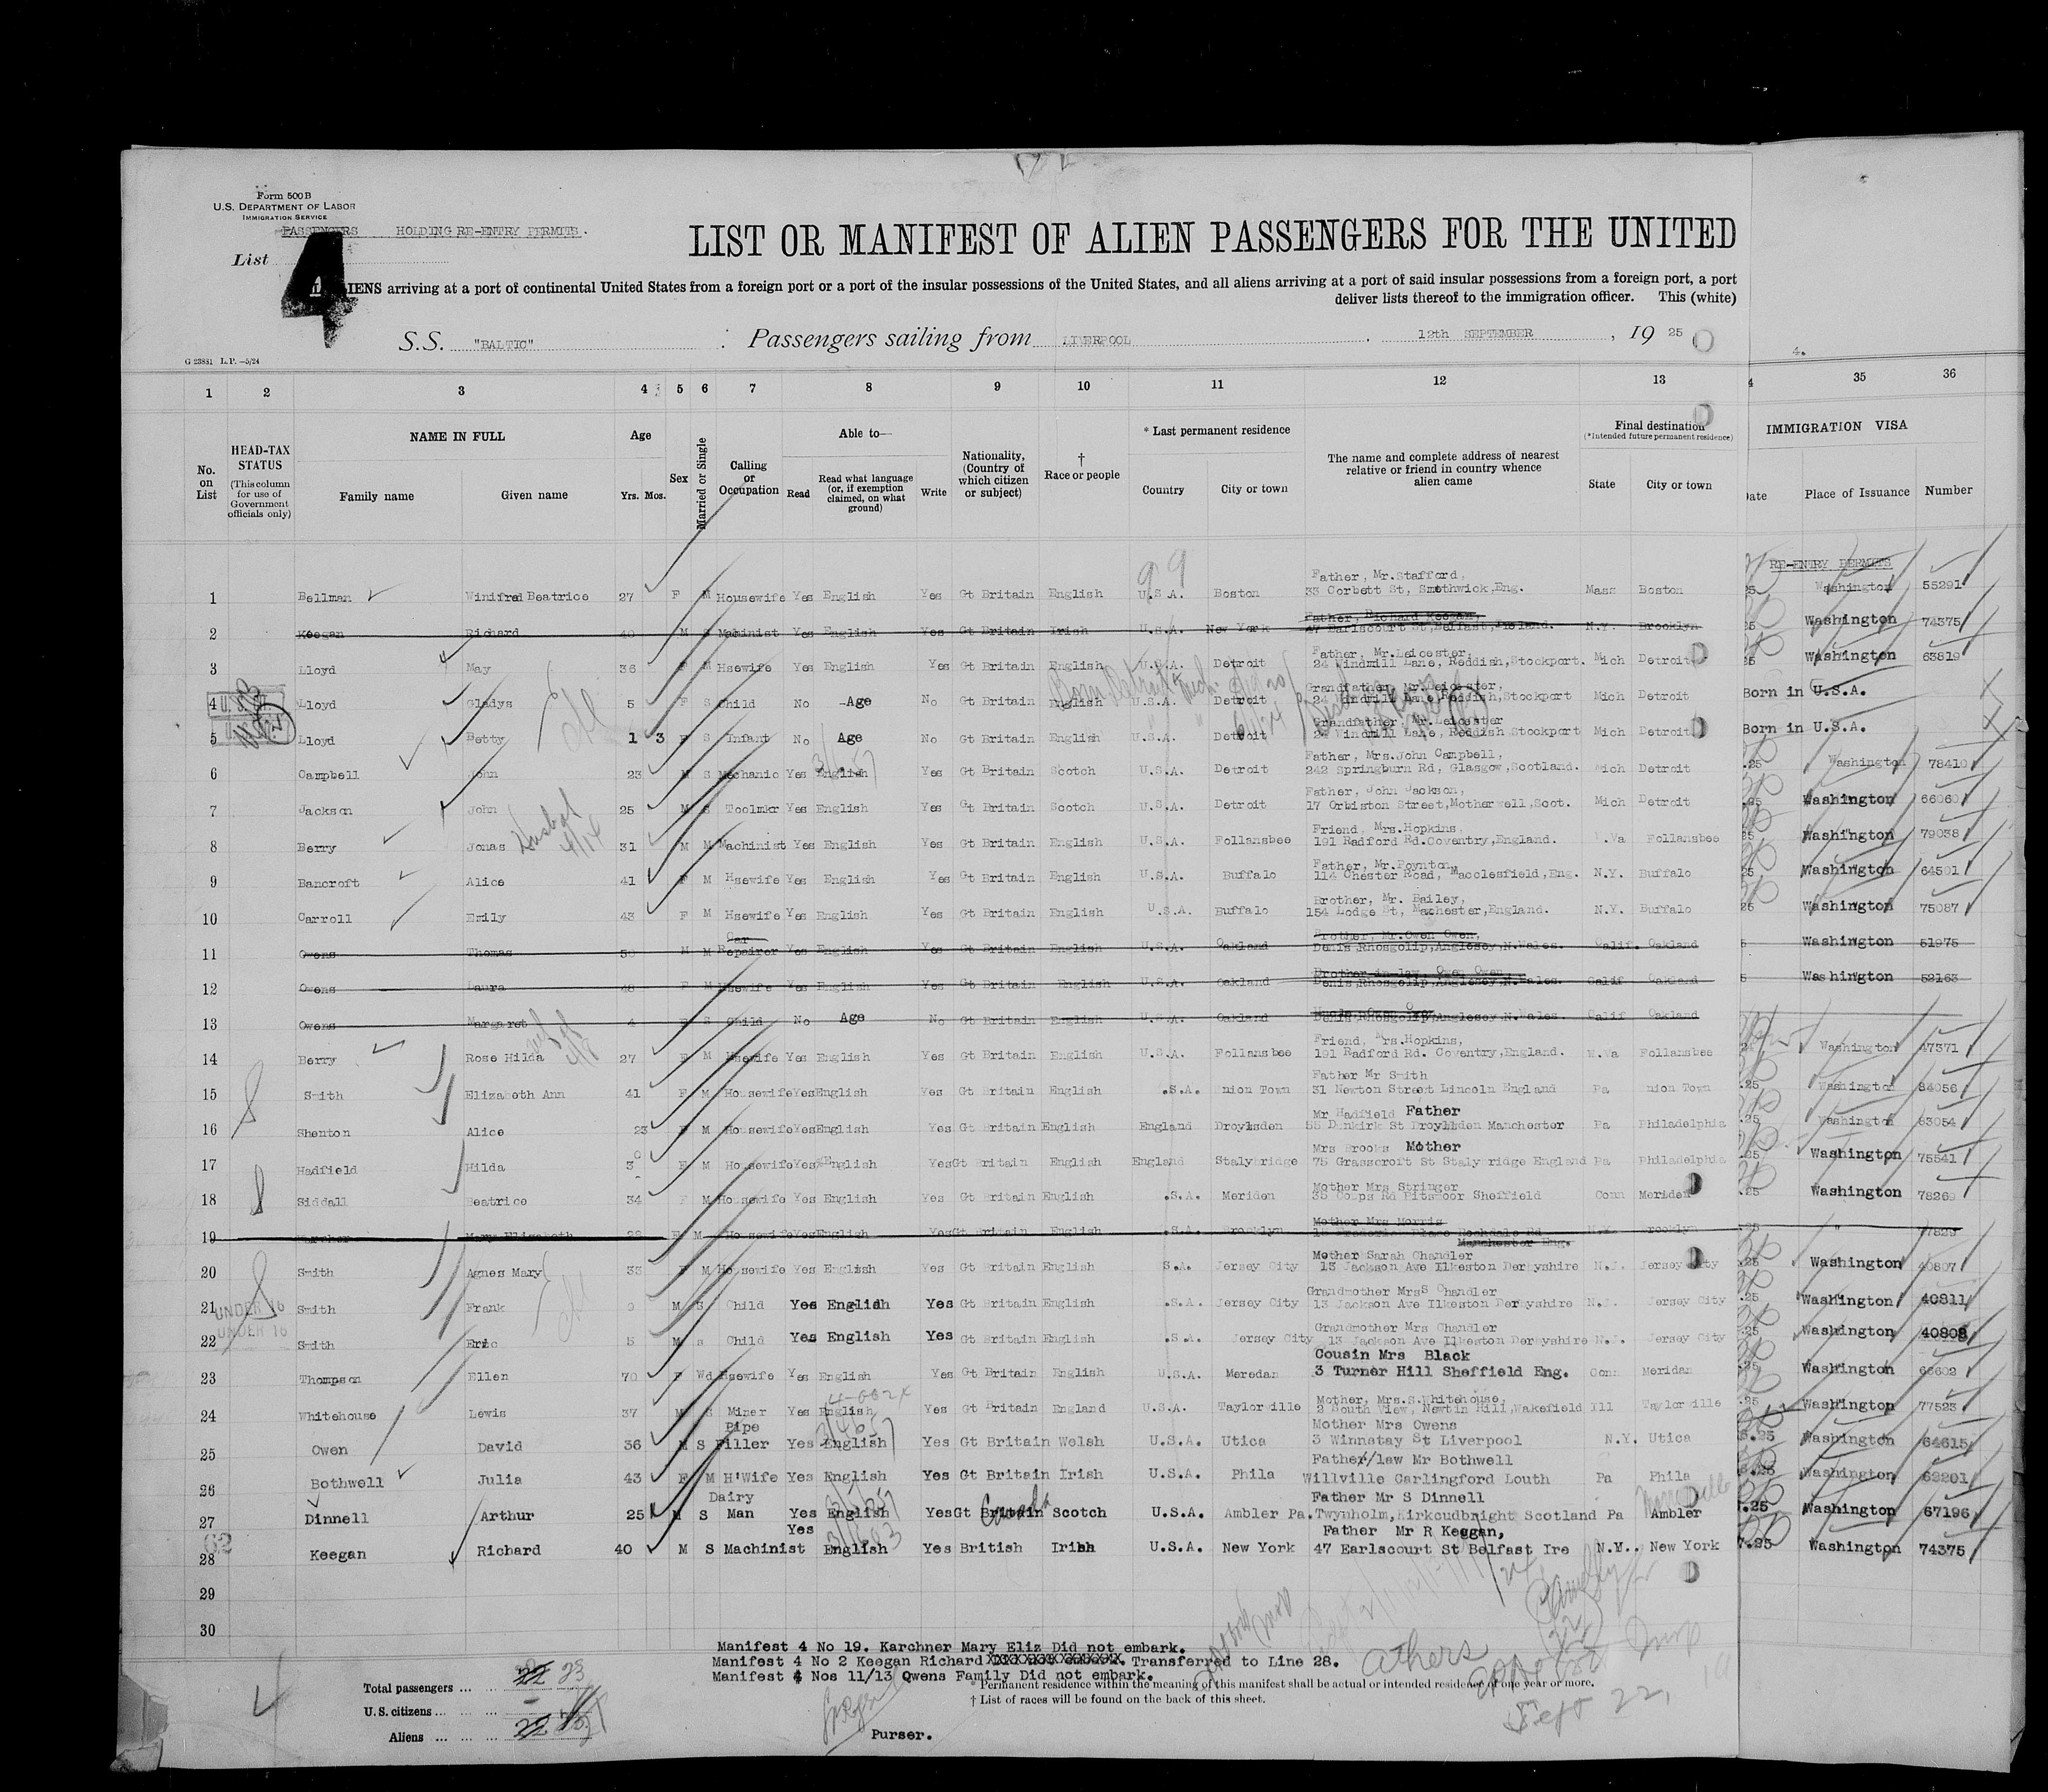 Form 500 B
U.S. DEPARTMENT OF LABOR
IMMIGRATION SERVICE
PASSENGERS HOLDING RE-ENTRY PERMITS.
List 4
LIST OR MANIFEST OF ALIEN PASSENGERS FOR THE UNITED
ALIENS arriving at a port of continental United States from a foreign port or a port of the insular possessions of the United States, and all aliens arriving at a port of said insular possessions from a foreign port, a port
deliver lists thereof to the immigration officer. This (white)
S.S. "BALTIC" Passengers sailing from LIVERPOOL. 12th SEPTEMBER, 19 25
G 23881 L.P. —5/24
4.
1 2 3 4 5 6 7 8 9 10 11 12 13 35 36
No. on List
HEAD-TAX STATUS (This column for use of Government officials only)
NAME IN FULL
Family name Given name
Age
Yrs. Mos.
Sex
Married or Single
Calling or Occupation
Able to—
Read Read what language (or, if exemption claimed, on what ground) Write
Nationality, (Country of which citizen or subject)
† Race or people
* Last permanent residence
Country City or town
The name and complete address of nearest relative or friend in country whence alien came
Final destination
(*Intended future permanent residence)
State City or town
IMMIGRATION VISA
Date Place of Issuance Number
RE-ENTRY PERMITS
99
1 Bellman Winifred Beatrice 27 F M Housewife Yes English Yes Gt Britain English U.S.A. Boston Father, Mr.Stafford, 33 Corbett St, Smethwick,Eng. Mass Boston 25 Washington 55291
2 Keegan Richard 40 M S Machinist Yes English Yes Gt Britain Irish U.S.A. New York Father, Richard Keegan, 47 Earlscourt St,Belfast,Ireland. N.Y. Brooklyn 25 Washington 74375
3 Lloyd May 36 F M Hsewife Yes English Yes Gt Britain English U.S.A. Detroit Father, Mr.Leicester, 24 Windmill Lane, Reddish,Stockport. Mich Detroit 25 Washington 63819
4 Lloyd Gladys 5 F S Child No Age No Gt Britain English U.S.A. Detroit Grandfather, Mr.Leicester, 24 Windmill Lane, Reddish,Stockport Mich Detroit Born in U.S.A.
5 Lloyd Betty 1 3 F S Infant No Age No Gt Britain English U.S.A. Detroit Grandfather, Mr.Leicester 24 Windmill Lane, Reddish Stockport Mich Detroit Born in U.S.A.
6 Campbell John 23 M S Mechanic Yes English Yes Gt Britain Scotch U.S.A. Detroit Father, Mrs.John Campbell, 242 Springburn Rd, Glasgow,Scotland. Mich Detroit .25 Washington 78410
7 Jackson John 25 M S Toolmkr Yes English Yes Gt Britain Scotch U.S.A. Detroit Father, John Jackson, 17 Orbiston Street,Motherwell,Scot. Mich Detroit .25 Washington 66060
8 Berry Jonas 31 M M Machinist Yes English Yes Gt Britain English U.S.A. Follansbee Friend, Mrs.Hopkins, 191 Radford Rd.Coventry,England. .Va Follansbee 25 Washington 79038
9 Bancroft Alice 41 F M Hsewife Yes English Yes Gt Britain English U.S.A. Buffalo Father, Mr.Poynton, 114 Chester Road, Macclesfield,Eng. N.Y. Buffalo 25 Washington 64501
10 Carroll Emily 43 F M Hsewife Yes English Yes Gt Britain English U.S.A. Buffalo Brother, Mr. Bailey, 154 Lodge St, Machester,England. N.Y. Buffalo 25 Washington 75087
11 Owens Thomas 50 M M Car Repairer Yes English Yes Gt Britain English U.S.A. Oakland Brother, Mr.Owen Owen, Denis,Rhosgolip,Anglesey,N.Wales. Calif. Oakland 5 Washington 51975
12 Owens Laura 48 F M Hsewife Yes English Yes Gt Britain English U.S.A. Oakland Brother in law, Owen Owen Denis,Rhosgolip,Anglesey,N.Wales. Calif Oakland 5 Washington 52163
13 Owens Margaret 4 F S Child No Age No Gt Britain English U.S.A. Oakland Denis,Rhosgolip,Anglesey,N.Wales Calif Oakland
14 Berry Rose Hilda 27 F M Hsewife Yes English Yes Gt Britain English U.S.A. Follansbee Friend, Mrs.Hopkins, 191 Radford Rd. Coventry,England. W.Va Follansbee 24 Washington 47371
15 Smith Elizabeth Ann 41 F M Housewife Yes English Yes Gt Britain English .S.A. Union Town Father Mr Smith 31 Newton Street Lincoln England Pa nion Town .25 Washington 84056
16 Shenton Alice 23 F M Housewife Yes English Yes Gt Britain English England Droylsden Mr Hadfield Father 55 Dunkirk St Droylsden Manchester Pa Philadelphia .25 Washington 83054
17 Hadfield Hilda 30 F M Housewife Yes English Yes Gt Britain English England Stalybridge Mrs Brooks Mother 75 Grasscroft St Stalybridge England Pa Philadelphia .25 Washington 75541
18 Siddall Beatrice 34 F M Housewife Yes English Yes Gt Britain English .S.A. Meriden Mother Mrs Stringer 35 Coups Rd Pitsmoor Sheffield Conn Meriden .25 Washington 78269
19 Karchner Mary Elizabeth 28 F M Housewife Yes English Yes Gt Britain English .S.A. Brooklyn Mother Mrs Morris Place Rochdale Rd Manchester Eng. N.Y. Brooklyn .25 " 77829
20 Smith Agnes Mary 33 F M Housewife Yes English Yes Gt Britain English S.A. Jersey City Mother Sarah Chandler 13 Jackson Ave Ilkeston Derbyshire N.J. Jersey City .25 Washington 40807
21 UNDER 16 Smith Frank 9 M S Child Yes English Yes Gt Britain English .S.A. Jersey City Grandmother Mrs S Chandler 13 Jackson Ave Ilkeston Derbyshire N.J. Jersey City .25 Washington 40811
22 UNDER 16 Smith Eric 5 M s Child Yes English Yes Gt Britain English .S.A. Jersey City Grandmother Mrs Chandler 13 Jackson Ave Ilkeston Derbyshire N.J. Jersey City .25 Washington 40808
23 Thompson Ellen 70 F Wd Hsewife Yes English Yes Gt Britain English U.S.A. Meredan Cousin Mrs Black 3 Turner Hill Sheffield Eng. Conn Meridan .25 Washington 66602
24 Whitehouse Lewis 37 M S Miner Yes English Yes Gt Britain England U.S.A. Taylorville Mother, Mrs.S.Whitehouse, 2 South View, Newtin Hill,Wakefield Ill Taylorville .25 Washington 77523
25 Owen David 36 M S Pipe Filler Yes English Yes Gt Britain Welsh U.S.A. Utica Mother Mrs Owens 3 Winnatay St Liverpool N.Y. Utica .25 Washington 64615
26 Bothwell Julia 43 F M H'Wife Yes English Yes Gt Britain Irish U.S.A. Phila Father/law Mr Bothwell Willville Carlingford Louth Pa Phila .25 Washington 62201
27 Dinnell Arthur 25 M S Dairy Man Yes English Yes Gt Britain Canada Scotch U.S.A. Ambler Pa. Father Mr S Dinnell Twynholm,Kirkcudbright Scotland Pa Ambler .25 Washington 67196
28 Keegan Richard 40 M S Machinist Yes English Yes British Irish U.S.A. New York Father Mr R Keegan, 47 Earlscourt St Belfast Ire N.Y.. New York .25 Washington 74375
29
30
Manifest 4 No 19. Karchner Mary Eliz Did not embark.
Manifest 4 No 2 Keegan Richard Transferred to Line 28.
Manifest 4 Nos 11/13 Owens Family Did not embark.
Total passengers ... ... 22 23
U. S. citizens ... ...
Aliens ... ... ... 22
* Permanent residence within the meaning of this manifest shall be actual or intended residence of one year or more.
† List of races will be found on the back of this sheet.
Purser.
Sept 22,